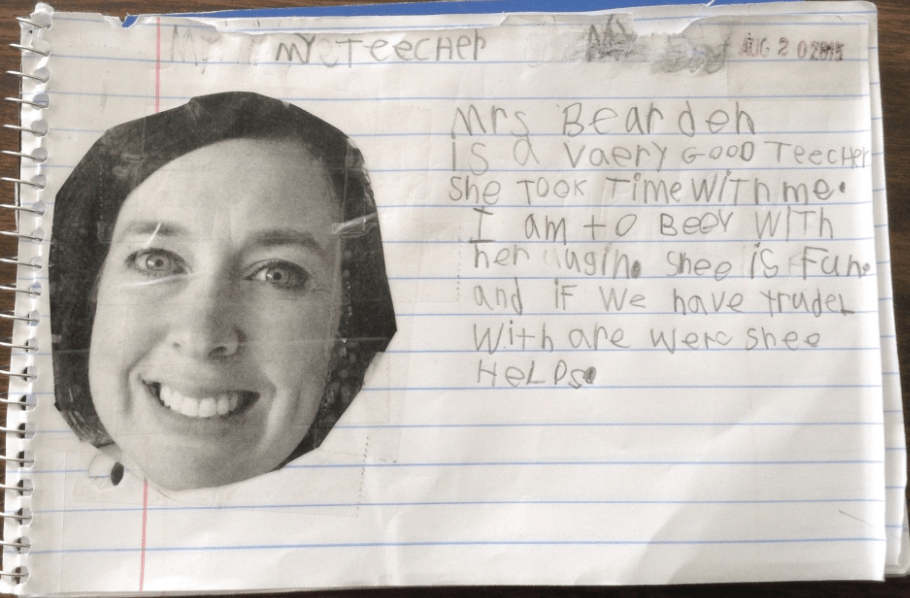 MY TEECHER
AUG 20 2015
Mrs Bearden
is a vaery GOOD TEecHer
She TOOK Time WiTH me.
I am to Beev WiTH
her agin. Shee is Fun.
and iF We have trudeL
With are werc shee
HeLPs.